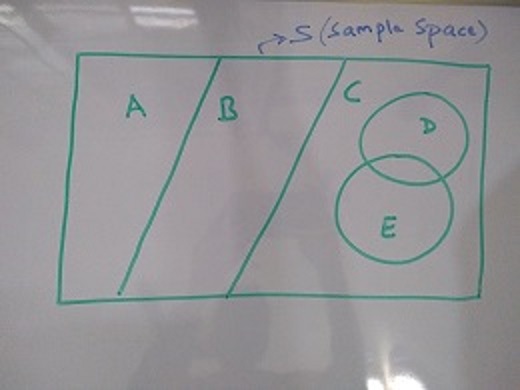 S (Sample Space)
A
B
C
D
E